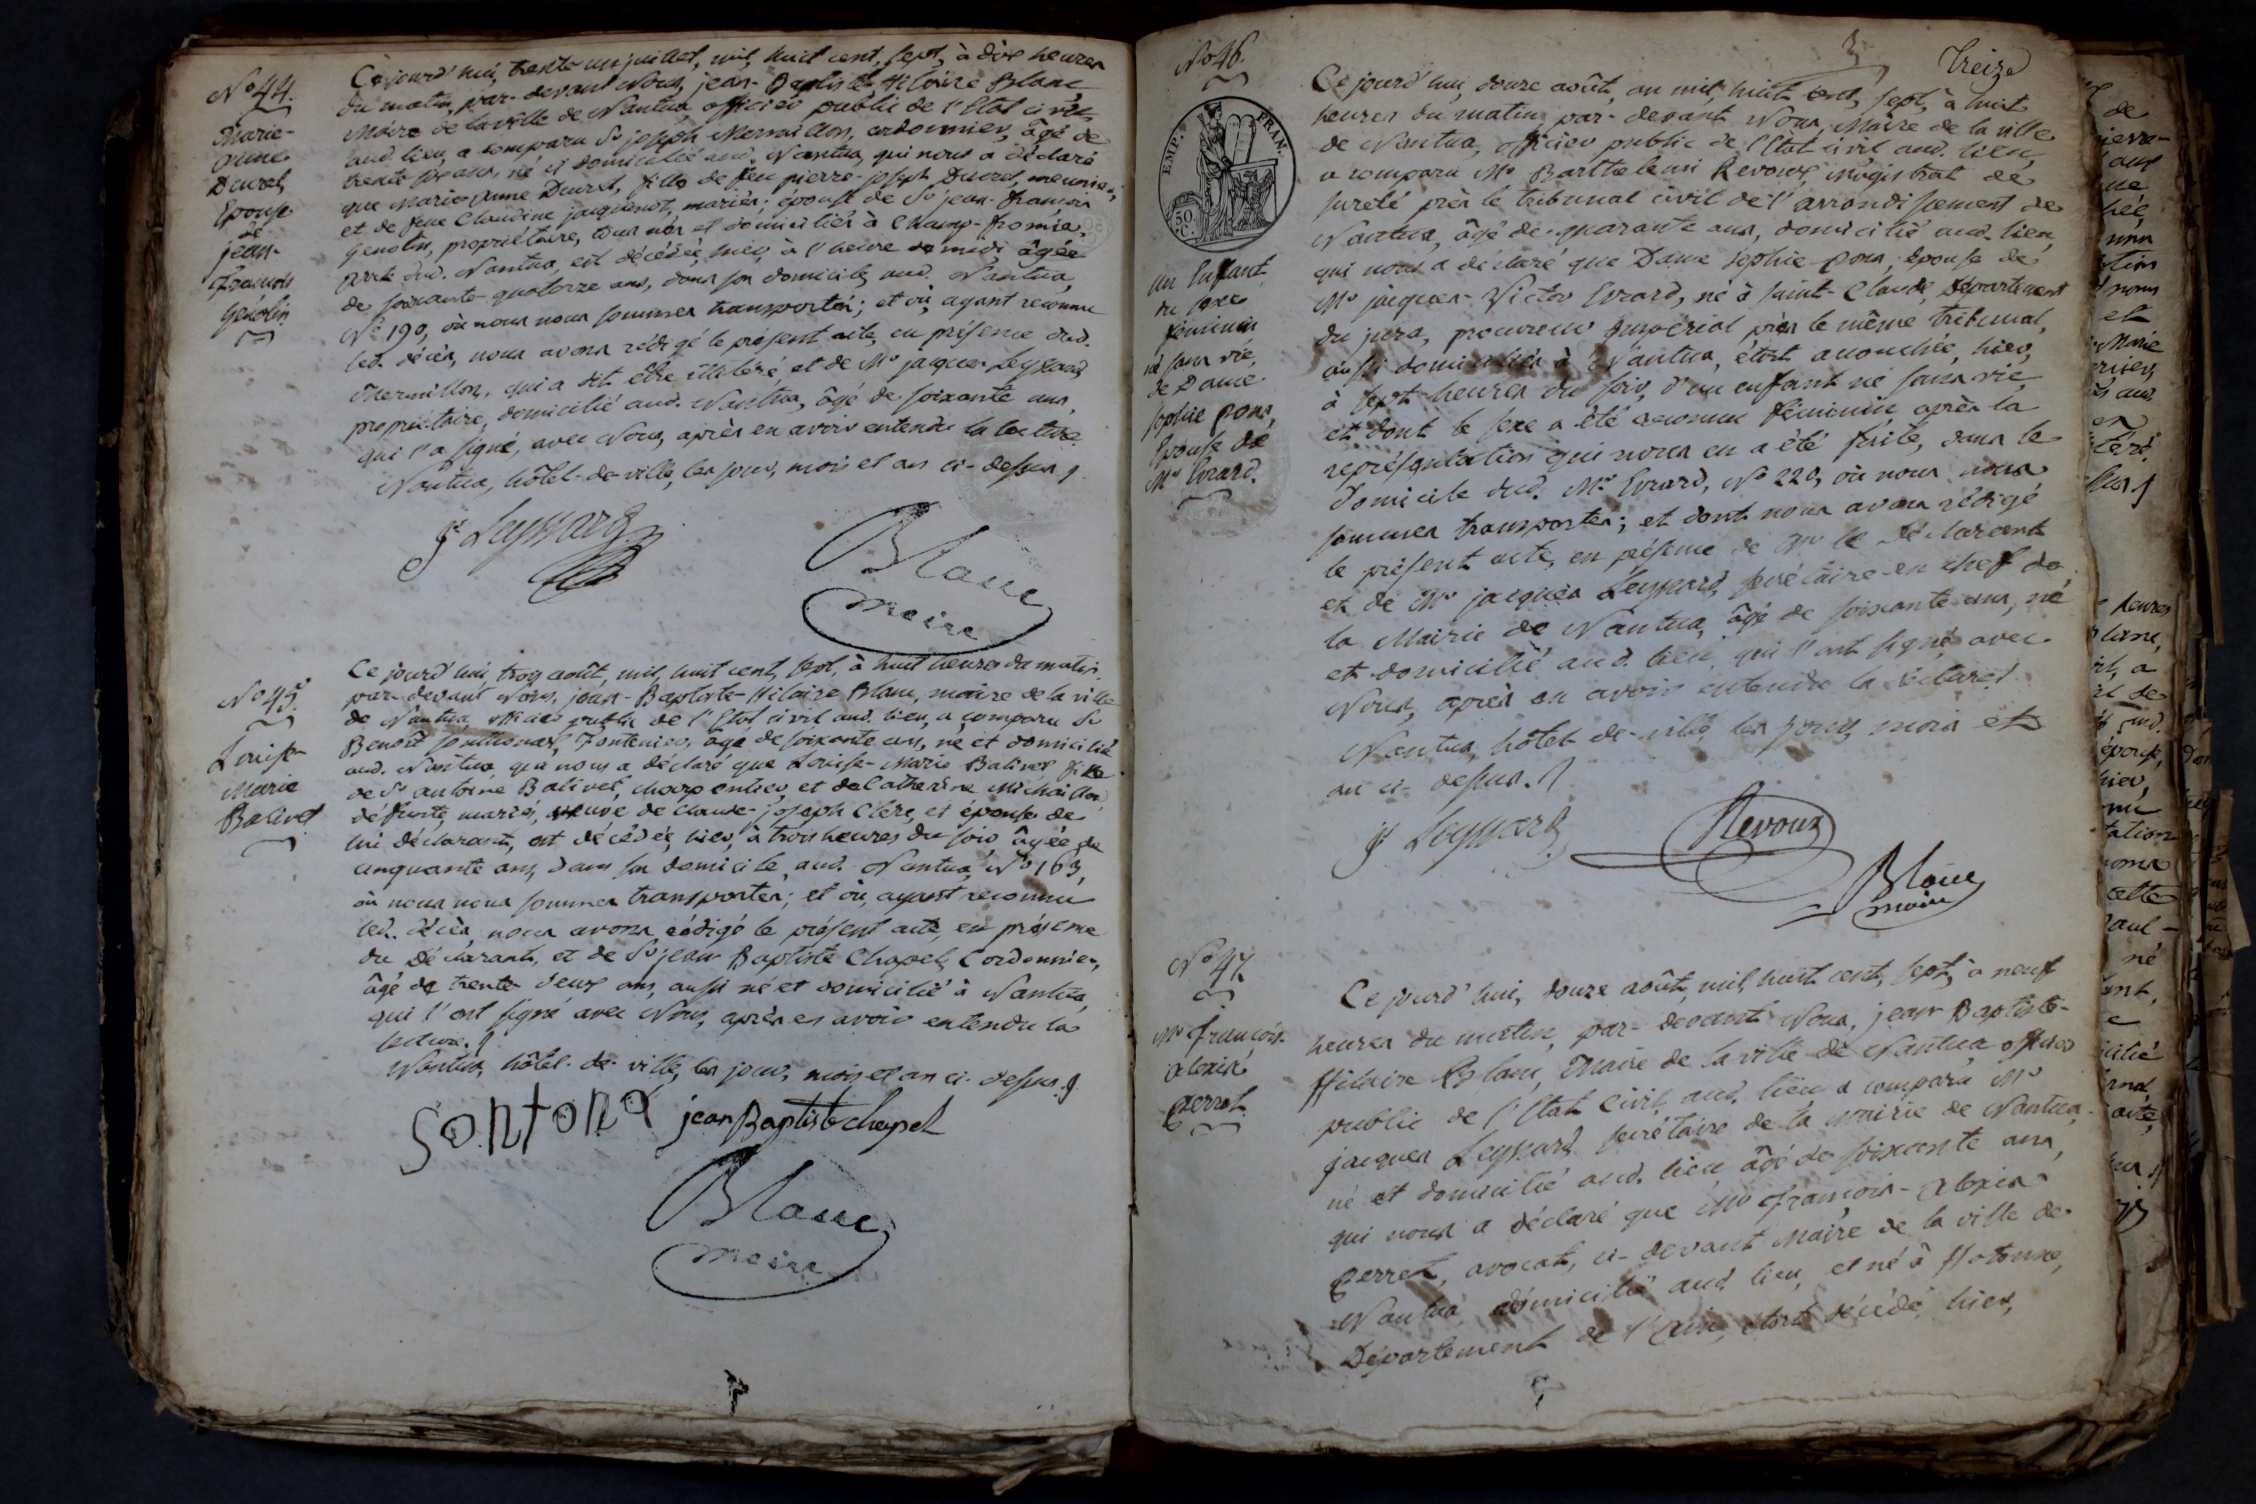 No 44.
Marie-
anne
Ducret
Epouse
de
jean-
François
Génolin
Ce jourd'hui, trente un juillet, mil, huit cent, sept, à dix heures
du matin, par-devant Nous, jean-Baptiste Hilaire Blanc,
Maire de la ville de Nantua, officier public de l'Etat civil
aud. lieu, a comparu Sr joseph Mermillon, cordonnier, âgé de
trente ans, né et domicilié aud. Nantua, qui nous a déclaré
que Marie-Anne Ducret, fille de feu pierre-joseph Ducret, meunier,
et de feue Claudine jacquenot, mariés; épouse de Sr jean-françois
Genolin, propriétaire, tous nés et domiciliés à Champ-fromier,
aud. Nantua, est décédée, hier, à l'heure de midi, âgée
de soixante-quatorze ans, dans son domicile, aud. Nantua,
No 190, où nous nous sommes transportés; et où, ayant reconnu
led. décès, nous avons rédigé le présent acte, en présence dud.
Mermillon, qui a dit être illitéré, et de Mr jacques Leyssard
propriétaire, domicilié aud. Nantua, âgé de soixante ans,
qui l'a signé, avec Nous, après en avoir entendu la lecture
Nantua, hôtel-de-ville, les jour, mois et an ci-dessus.
jq Leyssard
Blanc
maire
No 45.
Louise-
Marie
Balivet
Ce jourd'hui, trois août, mil, huit cent, sept, à huit heures du matin
par-devant Nous, jean-Baptiste-Hilaire Blanc, maire de la ville
de Nantua, officier public de l'Etat civil aud. lieu, a comparu Sr
Benoît âgé de soixante ans, né et domicilié
aud. Nantua, qui nous a déclaré que Louise-Marie Balivet fille
de Sr antoine Balivet, charpentier, et de Catherine Michaillon
défunts, mariés, veuve de claude-joseph Clerc, et épouse de
lui déclarant, est décédée, hier, à trois heures du soir, âgée de
cinquante ans, dans son domicile, aud. Nantua, No 163,
où nous nous sommes transportés; et où, ayant reconnu
led. décès, nous avons rédigé le présent acte, en présence
du Déclarant, et de Sr jean Baptiste Chapel, Cordonnier,
âgé de trente-deux ans, aussi né et domicilié à Nantua,
qui l'ont signé avec Nous, après en avoir entendu la
lecture.
Nantua, hôtel-de-ville, les jour, mois et an ci-dessus.
Sontona jean Baptiste chapel
Blanc
maire
Treize
No 46.
EMP. FRAN.
50
C.
un Enfant
du sexe
féminin
né sans vie,
de Dame
Sophie pons,
Epouse de
Mr Evrard.
Ce jourd'hui, douze août, an mil, huit cent, sept, à huit
heures du matin, par-devant Nous, Maire de la ville
de Nantua, officier public de l'Etat civil aud. lieu,
a comparu Mr Barthelemi Revoux, Magistrat de
sureté près le tribunal civil de l'arrondissement de
Nantua, âgé de quarante ans, domicilié aud. lieu,
qui nous a déclaré que Dame sophie pons, épouse de
Mr jacques-Victor Evrard, né à saint-Claude, Département
du jura, procureur Impérial près le même tribunal,
aussi domiciliés à Nantua, étoit accouchée, hier,
à sept heures du soir, d'un enfant né sans vie,
et dont le sexe a été reconnu féminin, après la
représentation qui nous en a été faite, dans le
domicile dud. Mr Evrard, No 220, où nous nous
sommes transportés; et dont nous avons rédigé
le présent acte, en présence de Mr le Déclarant
et de Mr jacques Leyssard, secrétaire-en-chef de
la Mairie de Nantua, âgé de soixante ans, né
et domicilié aud. lieu, qui l'ont signé, avec
Nous, après en avoir entendu la lecture.
Nantua, hôtel-de-ville, les jour, mois et
an ci-dessus.
jq Leyssard Revoux
Blanc
maire
No 47.
Mr françois-
alexis
Perret.
Ce jourd'hui, douze août, mil, huit cent, sept, à neuf
heures du matin, par-devant Nous, jean-Baptiste-
Hilaire Blanc, Maire de la ville de Nantua, officier
public de l'Etat Civil, aud. lieu, a comparu Mr
jacques Leyssard, secrétaire de la mairie de Nantua,
né et domicilié aud. lieu, âgé de soixante ans,
qui nous a déclaré que Mr françois-alexis
Perret, avocat, ci-devant Maire de la ville de
Nantua, domicilié aud. lieu, et né à Hotonne,
Département de l'ain, étoit décédé, hier,